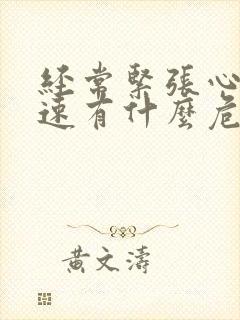 經常緊張心
速有什麼危
黃文濤